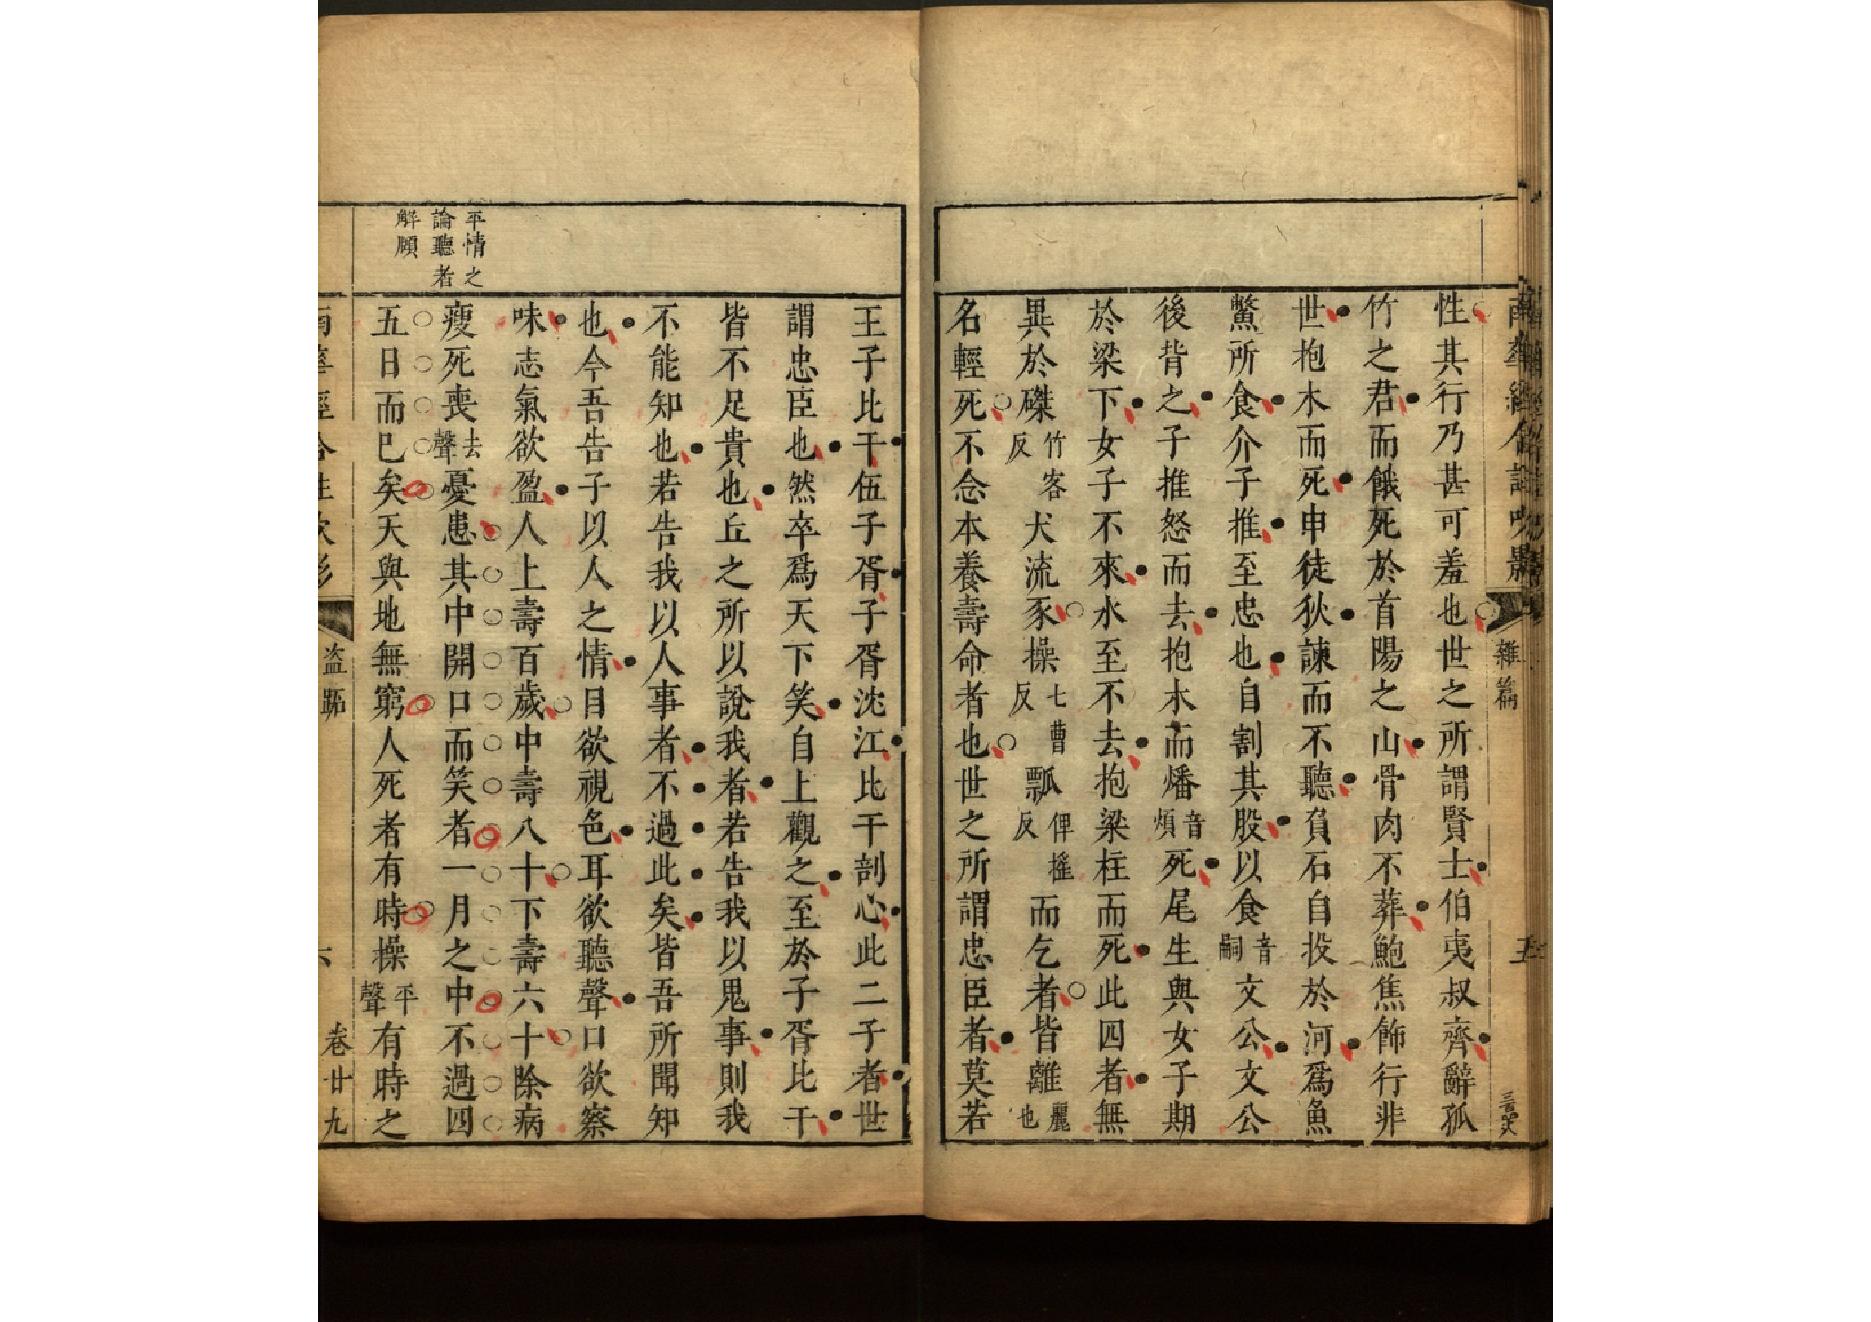 性其行乃甚可羞也世之所謂賢士伯夷叔齊辭孤
竹之君而餓死於首陽之山骨肉不葬鮑焦飾行非
世抱木而死申徒狄諫而不聽負石自投於河爲魚
鱉所食介子推至忠也自割其股以食音嗣文公文公
後背之子推怒而去抱木而燔音煩死尾生與女子期
於梁下女子不來水至不去抱梁柱而死此四者無
異於磔竹客反犬流豕操七曹反瓢俾搖反而乞者皆離麗也
名輕死不念本養壽命者也世之所謂忠臣者莫若
王子比干伍子胥子胥沈江比干剖心此二子者世
謂忠臣也然卒爲天下笑自上觀之至於子胥比干
皆不足貴也丘之所以說我者若告我以鬼事則我
不能知也若告我以人事者不過此矣皆吾所聞知
也今吾告子以人之情目欲視色耳欲聽聲口欲察
味志氣欲盈人上壽百歲中壽八十下壽六十除病
瘦死喪去聲憂患其中開口而笑者一月之中不過四
五日而已矣天與地無窮人死者有時操平聲有時之
平情之
論聽者
解頤
雜篇
五
盜跖
六
卷廿九